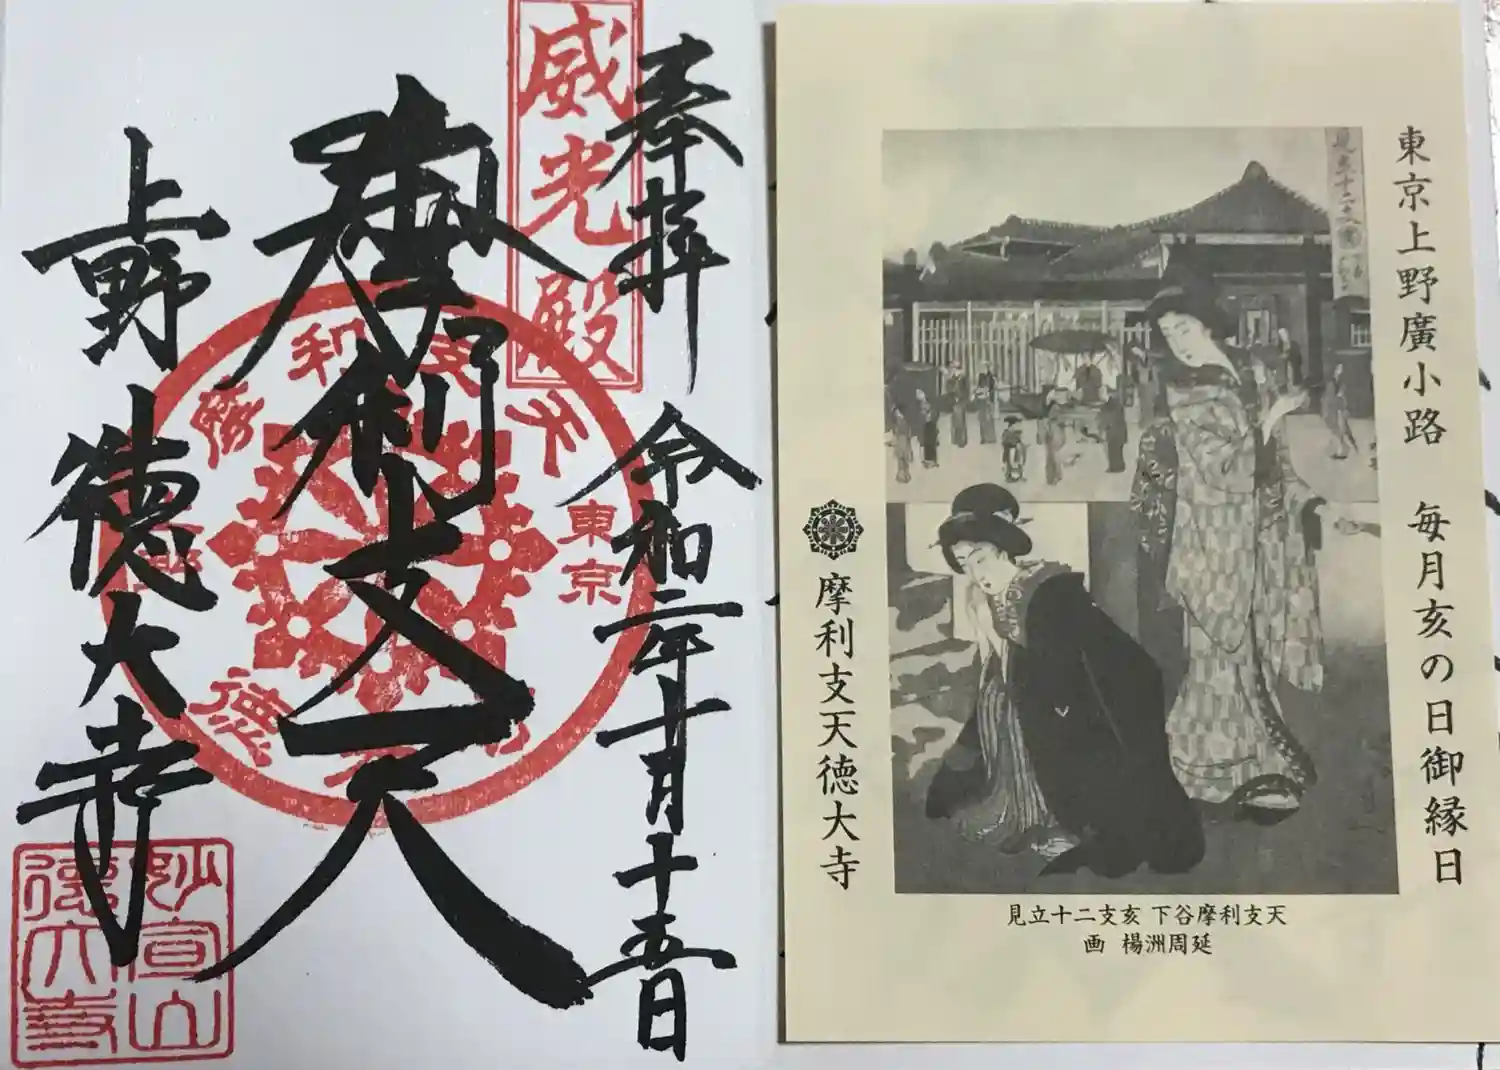 奉拝
令和二年十月十五日
威光殿
摩利支天
上野
徳大寺
摩利支天
東京
徳大寺
妙宣山
徳大寺
東京上野廣小路 毎月亥の日御縁日
摩利支天徳大寺
見立十二支
見立十二支亥 下谷摩利支天
延周洲楊 画